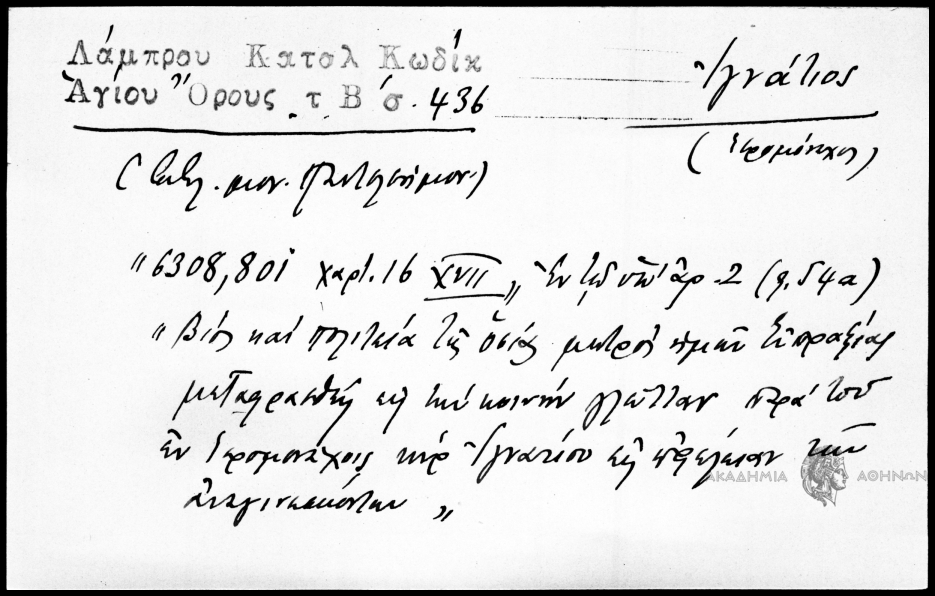 Λάμπρου Κατσλ Κωδίκ
Ἁγίου Ὄρους τ Β σ. 436
Ἰγνάτιος
(ἱερομόναχος)
(βιβλ. μον. Παντελεήμον.)
"6308,801 χαρτ. 16 XVII „ Ἐν τῷ ὑπ' ἀρ. 2 (φ. 54α)
"Βίος καὶ πολιτεία τῆς ὁσίας μητρὸς ἡμῶν Εὐπραξίας
μεταφρασθεὶς εἰς τὴν κοινὴν γλῶτταν παρὰ τοῦ
ἐν ἱερομονάχοις κὺρ Ἰγνατίου εἰς ὠφέλειαν τῶν
ἀναγινωσκόντων „
ΑΚΑΔΗΜΙΑ ΑΘΗΝΩΝ